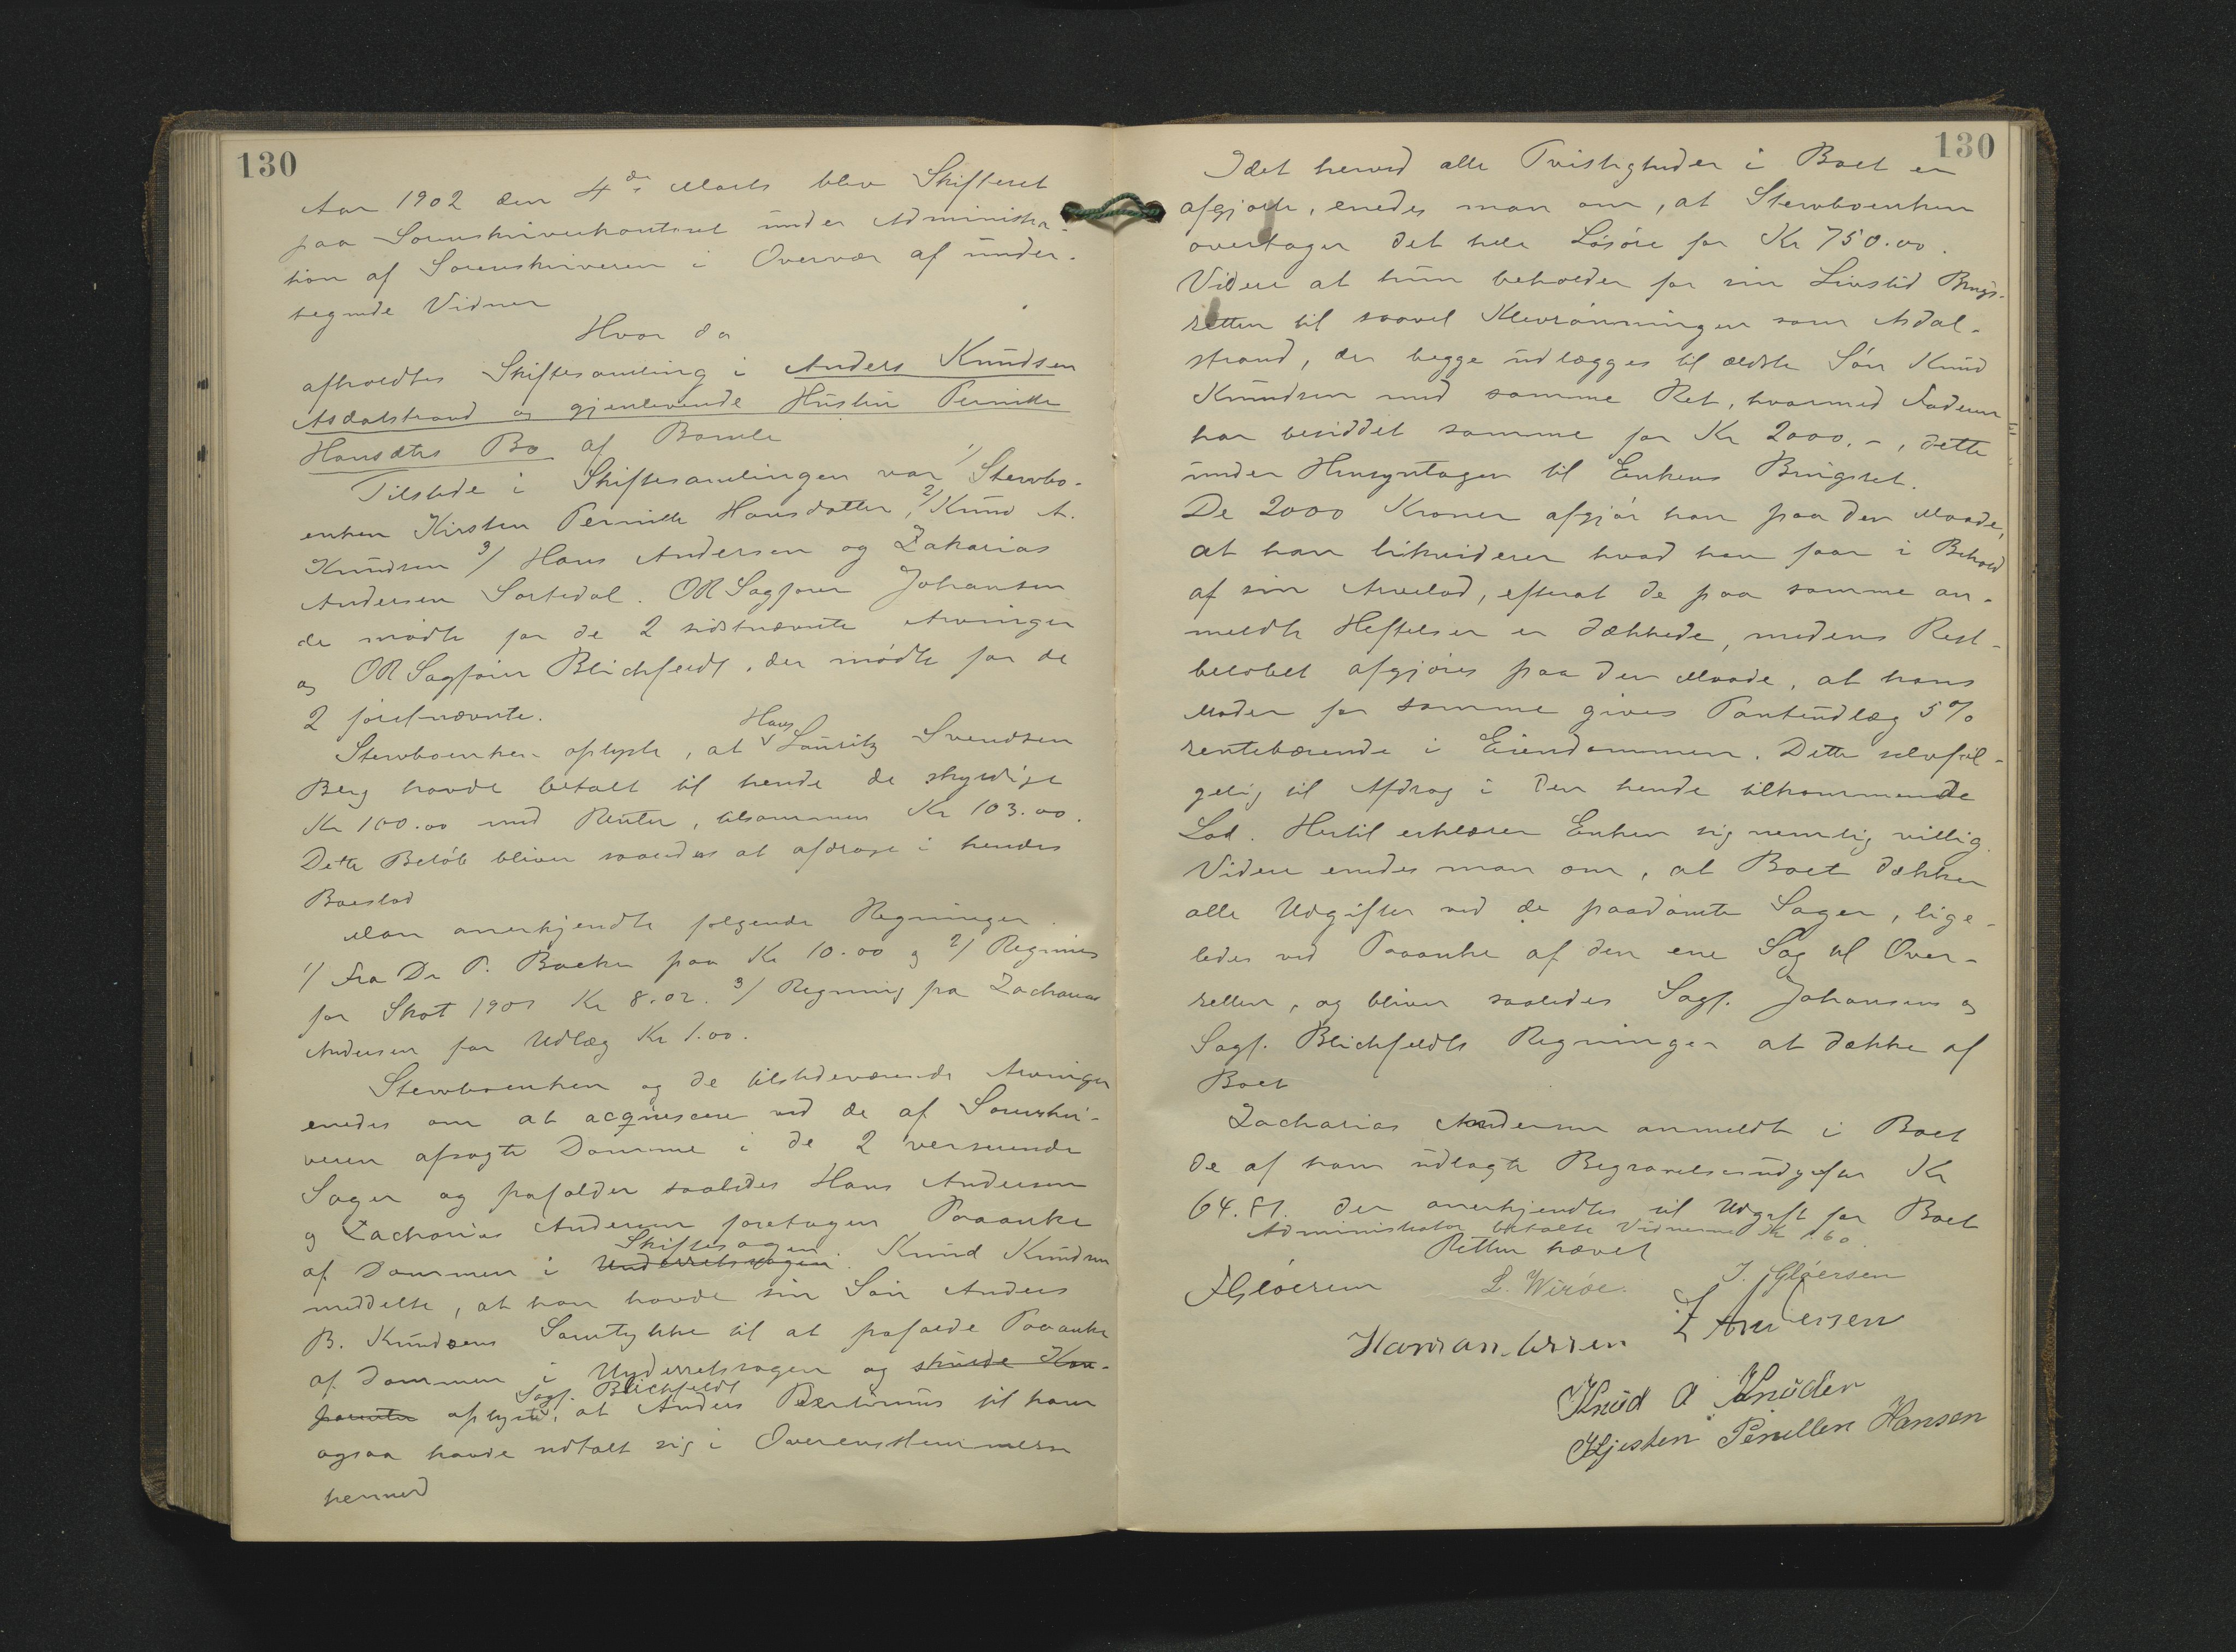 130
Aar 1902 den 4de Marts blev Skifteret
paa Sorenskriverkontoret under Administra-
tion af Sorenskriveren i Overvær af under-
tegnede Vidner
Hvor da
afholdtes Skiftesamling i Anders Knudsen
Asdalstrand og gjenlevende Hustru Pernille
Hansdtrs Bo af Bamle
Tilstede i Skiftesamlingen var 1/ Stervbo-
enken Kirsten Pernille Hansdatter, 2/ Knud A.
Knudsen 3/ Hans Andersen og Zakarias
Andersen Sortedal. OR Sagfører Johansen
der mødte for de 2 sidstnævnte Arvinger
og OR Sagfører Blichfeldt, der mødte for de
2 førstnævnte.
Stervboenken oplyste, at Hans Lauritz Svendsen
Berg havde betalt til hende de skyldige
Kr 100.00 med Renter, tilsammen Kr 103.00.
Dette Beløb bliver saaledes at afdrage i hendes
Boeslod
Man anerkjendte følgende Regninger.
1/ Fra Dr P. Backer paa Kr 10.00 og 2/ Regning
for Skat 1901 Kr 8.02. 3/ Regning fra Zacharias
Andersen for Udlæg Kr 1.00.
Stervboenken og de tilstedeværende Arvinger
enedes om at acquiescere ved de af Sorenskri-
veren afsagte Domme i de 2 verserende
Sager og frafalder saaledes Hans Andersen
og Zacharias Andersen foretagen Paaanke
af Dommen i Underretssagen Skiftesagen. Knud Knudsen
meddelte, at han havde sin Søn Anders
B. Knudsens Samtykke til at frafalde Paaanke
af Dommen i Underretssagen og skulde Kom-
parenten oplyste Sagf. Blichfeldt, at Anders til ham
ogsaa havde udtalt sig i Overensstemmelse
hermed
130
Idet herved alle Tvistigheder i Boet er
afgjorte, enedes man om, at Stervboenken
overtager det hele Løsøre for Kr 750.00.
Videre at hun beholder for sin Livstid Brugs-
retten til saavel Klevrønningen som Asdal-
strand, der begge udlægges til ældste Søn Knud
Knudsen med samme Ret, hvormed Faderen
har besiddet samme for Kr 2000.-, dette
under Hensyntagen til Enkens Brugsret.
De 2000 Kroner afgjør han paa den Maade,
at han likviderer hvad han faar i Behold
af sin Arvelod, efterat de paa samme an-
meldte Heftelser er dækkede, medens Rest-
beløbet afgjøres paa den Maade, at hans
Moder for samme gives Pantudlæg 5%
rentebærende i Eiendommen. Dette selvføl-
gelig til Afdrag i den hende tilkommende
Lod. Hertil erklærer Enken sig nemlig villig.
Videre enedes man om, at Boet dækker
alle Udgifter ved de paadømte Sager, lige-
ledes ved Paaanke af den ene Sag til Over-
retten, og bliver saaledes Sagf. Johansens og
Sagf. Blichfeldts Regninger at dække af
Boet
Zacharias Andersen anmeldte i Boet
de af ham udlagte Begravelsesudgifter Kr
64.81. der anerkjendtes til Udgift for Boet
Administrator betalte Vidnerne Kr 1.60.
Retten hævet
FGløersen L. Wirøe. J. Gløersen
Hansandersen Z Andersen
Knud A Knudsen
Kjesten Pernillen Hansen